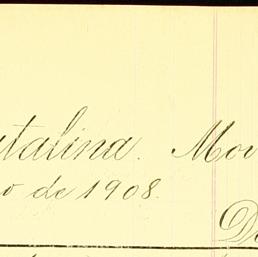 atalina. Mov
o de 1908.
D